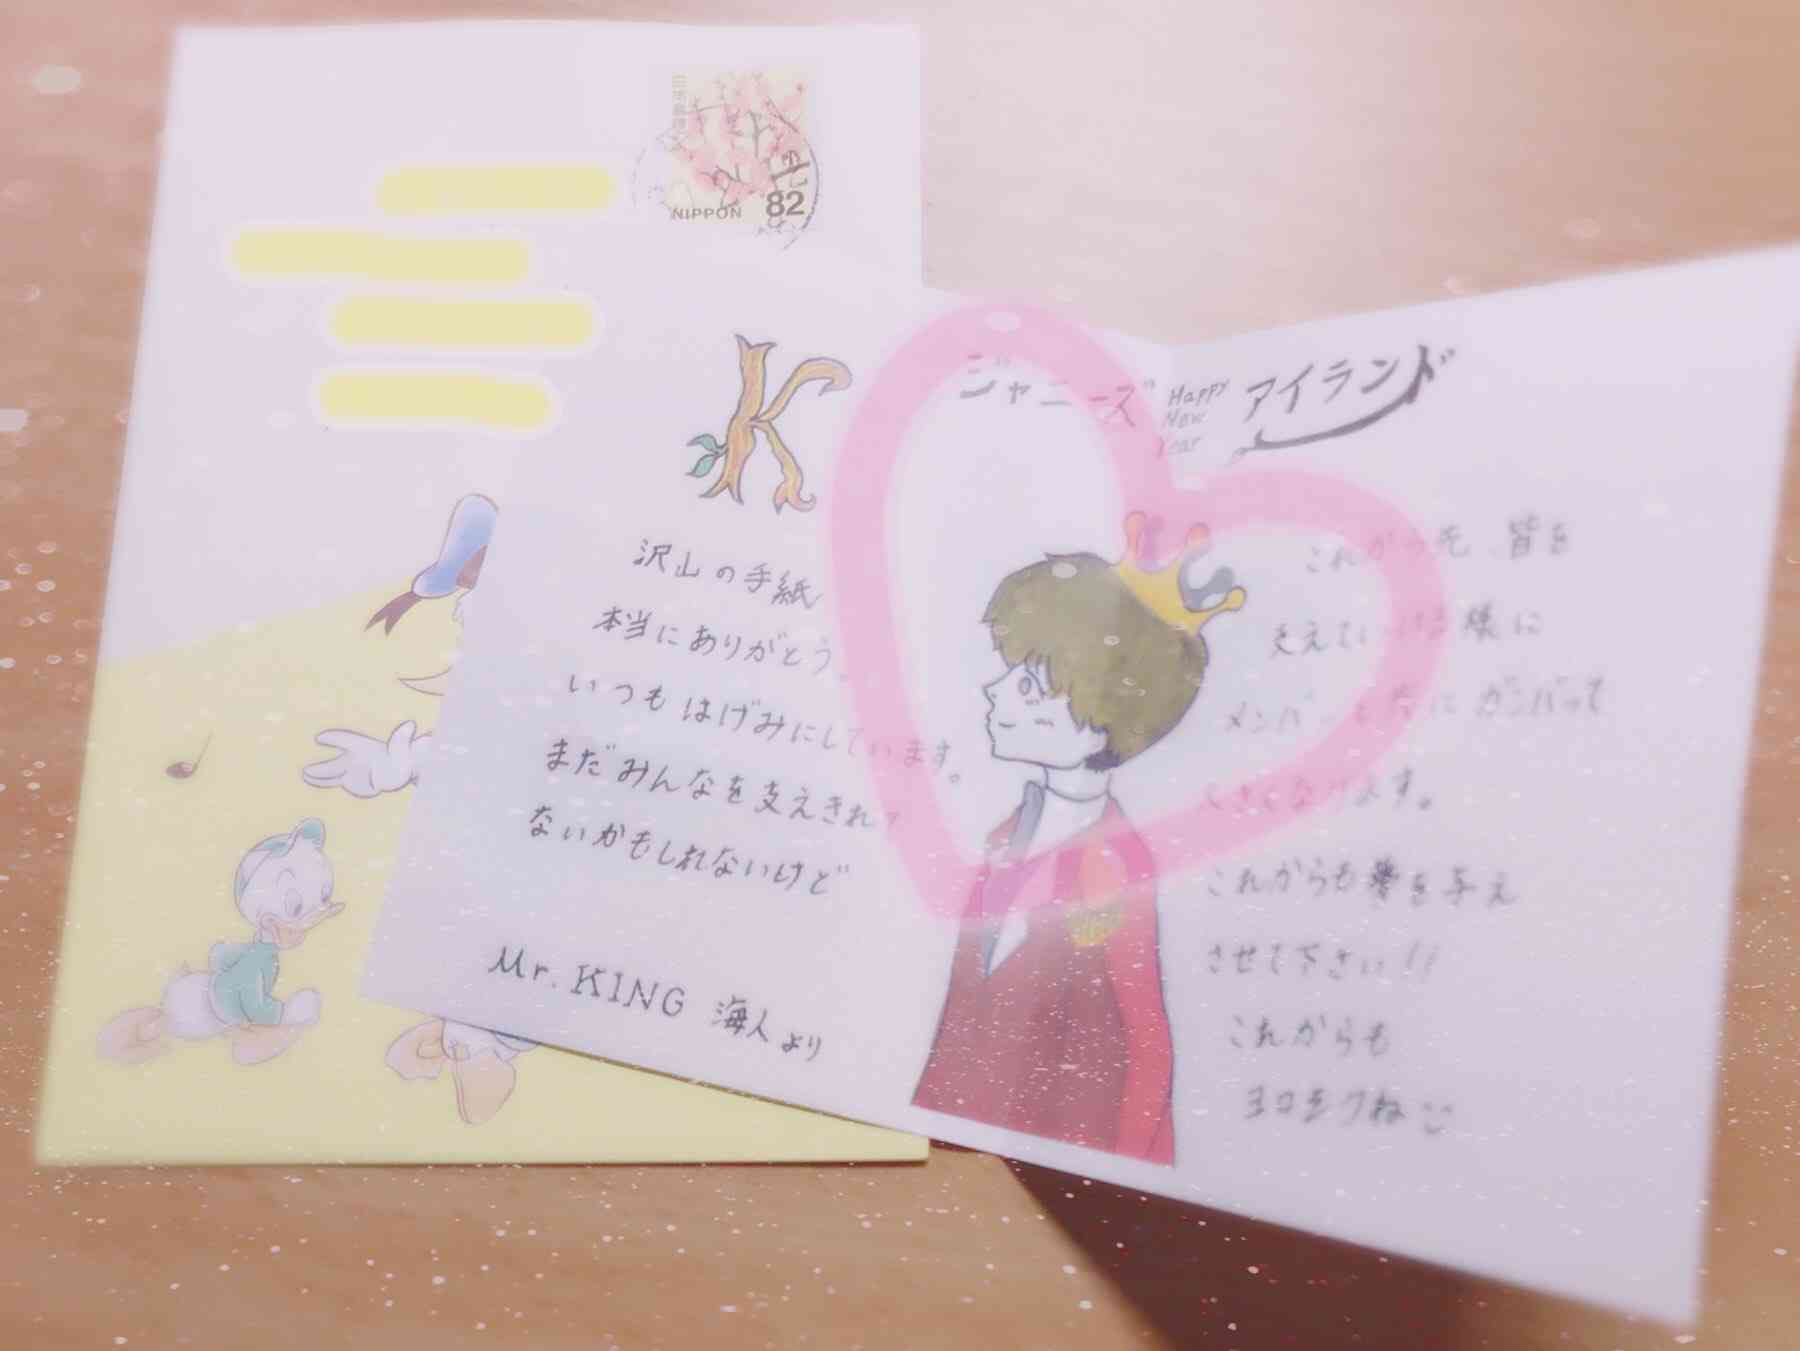 日本郵便
NIPPON 82
K
沢山の手紙
本当にありがとう。
いつもはげみにしています。
まだみんなを支えきれて
ないかもしれないけど
Mr. KING 海人より
ジャニーズ Happy New Year アイランド
これから先、皆を
支えていける様に
メンバーと共にガンバって
大きくなります。
これからも夢を与え
させて下さい!!
これからも
ヨロシクね